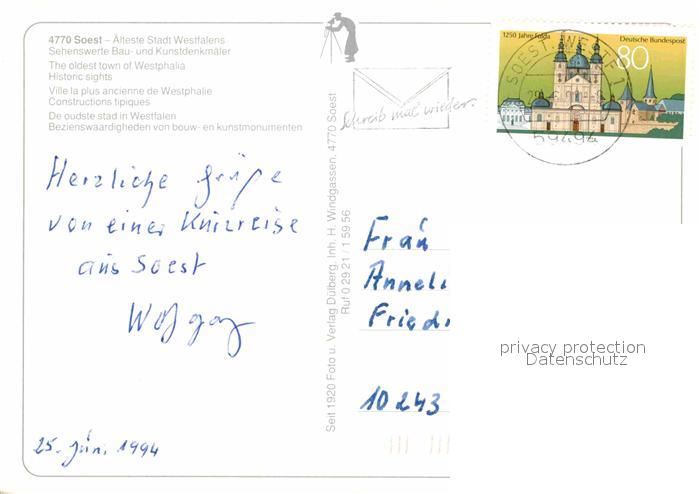 4770 Soest – Älteste Stadt Westfalens
Sehenswerte Bau- und Kunstdenkmäler
The oldest town of Westphalia
Historic sights
Ville la plus ancienne de Westphalie
Constructions tipiques
De oudste stad in Westfalen
Bezienswaardigheden von bouw- en kunstmonumenten
Herzliche Grüße
von einer Kurzreise
aus Soest
Wolfgang
25. Jun. 1994
Seit 1920 Foto u. Verlag Dülberg, Inh. H. Windgassen, 4770 Soest
Ruf 0 29 21 / 1 59 56
Schreib mal wieder.
1250 Jahre Fulda
Deutsche Bundespost
80
SOEST, WESTF 1
59494
Frau
Anneli
Friedr
10 243
privacy protection
Datenschutz